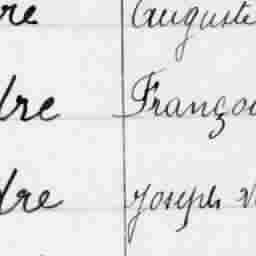 re Auguste
dre Françoi
dre Joseph